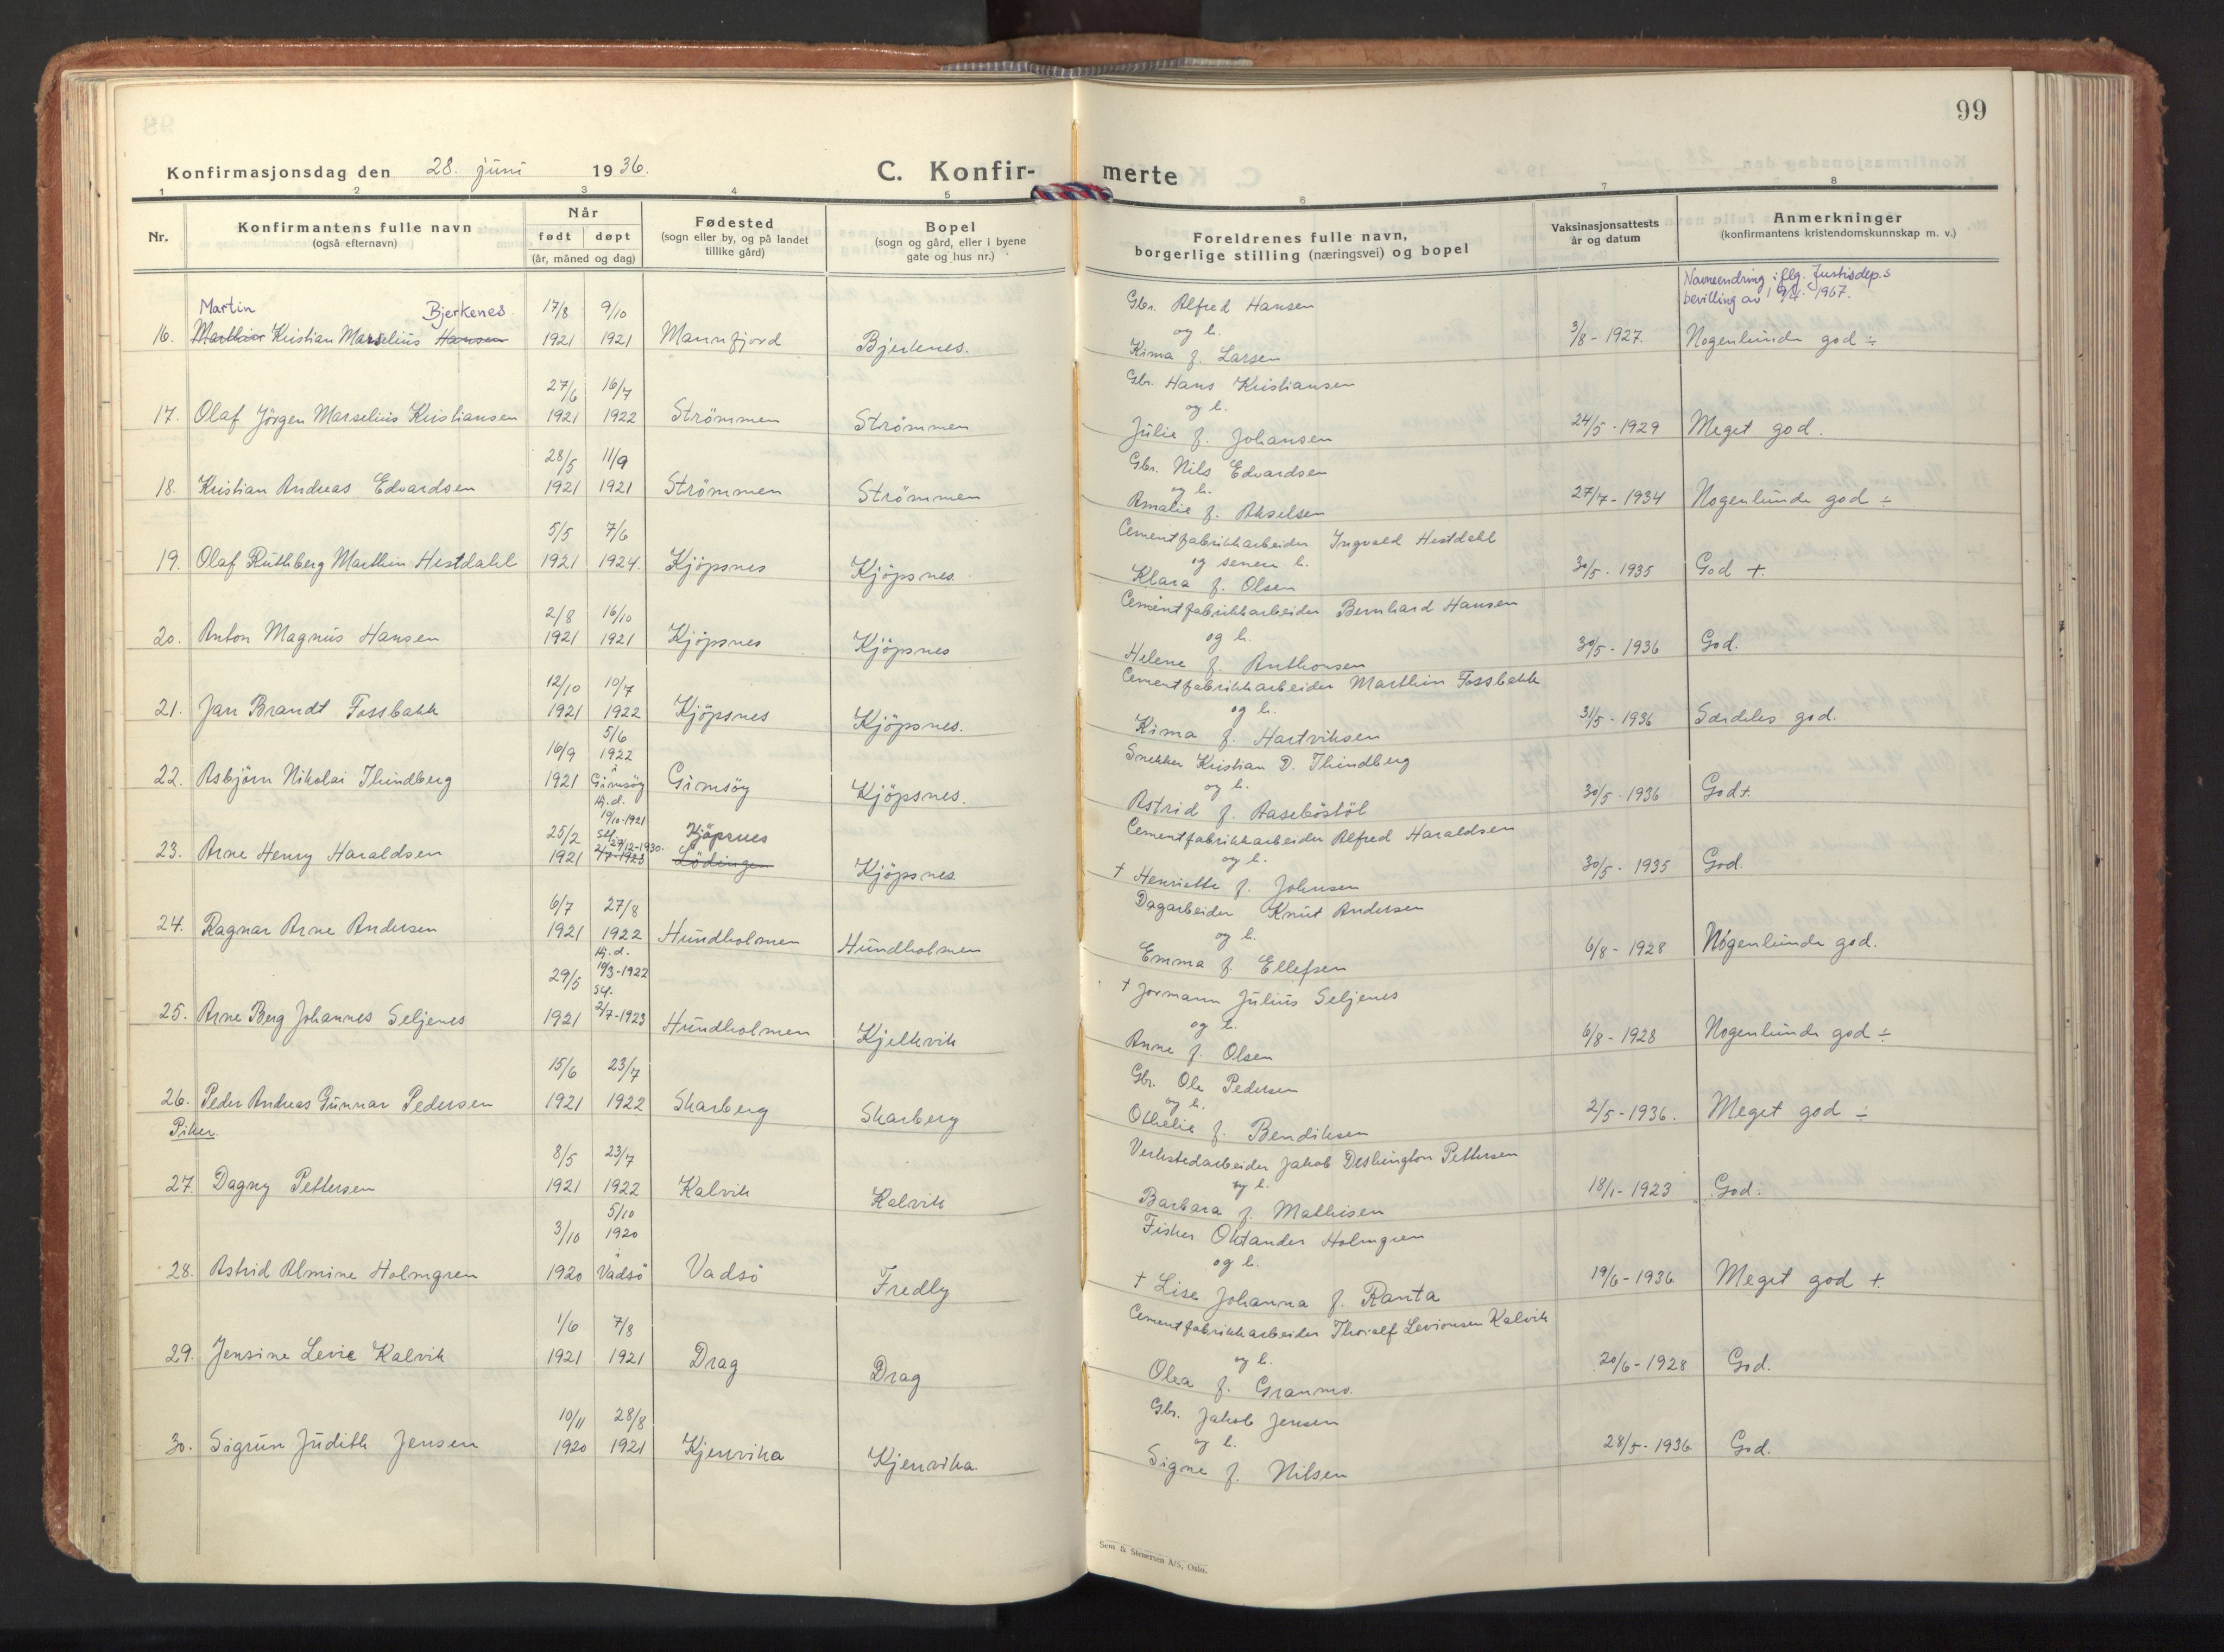 99
Konfirmasjonsdag den 28. juni 1936.
C. Konfirmerte
1 2 3 4 5 6 7 8
Nr.
Konfirmantens fulle navn
(også efternavn)
Når
født døpt
(år, måned og dag)
Fødested
(sogn eller by, og på landet
tillike gård)
Bopel
(sogn og gård, eller i byene
gate og hus nr.)
Foreldrenes fulle navn,
borgerlige stilling (næringsvei) og bopel
Vaksinasjonsattests
år og datum
Anmerkninger
(konfirmantens kristendomskunnskap m. v.)
Navneendring iflg. Justisdep.s
bevilling av 1967.
Martin Bjerkenes 17/8 9/10 Gbr. Alfred Hansen
og h.
16. Marthin Kristian Marselius Hansen 1921 1921 Mannfjord Bjerknes. Kima f. Larsen 3/8 - 1927. Nogenlunde god ÷
27/6 16/7 Gbr. Hans Kristiansen
og h.
17. Olaf Jörgen Marselius Kristiansen 1921 1922 Strömmen Strömmen Julie f. Johansen 24/5 - 1929 Meget god.
28/5 11/9 Gbr. Nils Edvardsen
og h.
18. Kristian Andreas Edvardsen 1921 1921 Strömmen Strömmen Amalie f. Akselsen 27/7 - 1934 Nogenlunde god ÷
5/5 7/6 Cementfabrikkarbeider Ingvald Hestdahl
og senere h.
19. Olaf Ruthberg Marthin Hestdahl 1921 1924. Kjöpsnes Kjöpsnes. Klara f. Olsen 30/5 - 1935 God +.
2/8 16/10 Cementfabrikkarbeider Bernhard Hansen
og h.
20. Anton Magnus Hansen 1921 1921 Kjöpsnes Kjöpsnes Helene f. Anthonsen 30/5 - 1936 God.
12/10 10/7 Cementfabrikkarbeider Marthin Fossbakk
og h.
21. Jan Brandt Fossbakk 1921 1922 Kjöpsnes Kjöpsnes. Kima f. Hartviksen 31/5 - 1936 Særdeles god.
16/9 5/6 1922 Snekker Kristian D. Thindberg
og h.
22. Asbjörn Nikolai Thindberg 1921 i Gimsöy Gimsöy Kjöpsnes. Astrid f. Aaseböstöl 30/5 - 1936 God +.
Hj. d. 19/10-1921
25/2 st. 27/12-1930. Kjöpsnes Cementfabrikkarbeider Alfred Haraldsen
og h.
23. Arne Henry Haraldsen 1921 2/7-1923 Lödingen Kjöpsnes † Henriette f. Johnsen 30/5 - 1935 God.
6/7 27/8 Dagarbeider Knut Andersen
og h.
24. Ragnar Arne Andersen 1921 1922 Hundholmen Hundholmen Emma f. Ellefsen 6/8 - 1928 Nogenlunde god.
Hj. d.
29/5 19/3-1922 st. † Jormann Julius Seljenes
og h.
25. Arne Berg Johannes Seljenes 1921 2/7-1923 Hundholmen Kjelkvik Anne f. Olsen 6/8 - 1928 Nogenlunde god ÷
15/6 23/7 Gbr. Ole Pedersen
og h.
26. Peder Andreas Gunnar Pedersen 1921 1922 Skarberg Skarberg Othelie f. Bendiksen 2/5 - 1936. Meget god ÷
Piker.
8/5 23/7 Verkstedarbeider Jakob Deshington Pettersen
og h.
27. Dagny Pettersen 1921 1922 Kalvik Kalvik Barbara f. Mathisen 18/1 - 1923 God.
3/10 5/10 1920 Fisker Oktander Holmgren
og h.
28. Astrid Almine Holmgren 1920 i Vadsö Vadsö Fredly † Lise Johanna f. Ranta 19/6 - 1936 Meget god +.
1/6 7/8 Cementfabrikkarbeider Thoralf Levionsen Kalvik
og h.
29. Jensine Levie Kalvik 1921 1921 Drag Drag Olea f. Granmo. 20/6 - 1928 God.
10/11 28/8 Gbr. Jakob Jensen
og h.
30. Sigrun Judith Jensen 1920 1921 Kjenvika Kjenvika. Signe f. Nilsen 28/5 - 1936 God.
Sem & Stenersen A/S, Oslo.